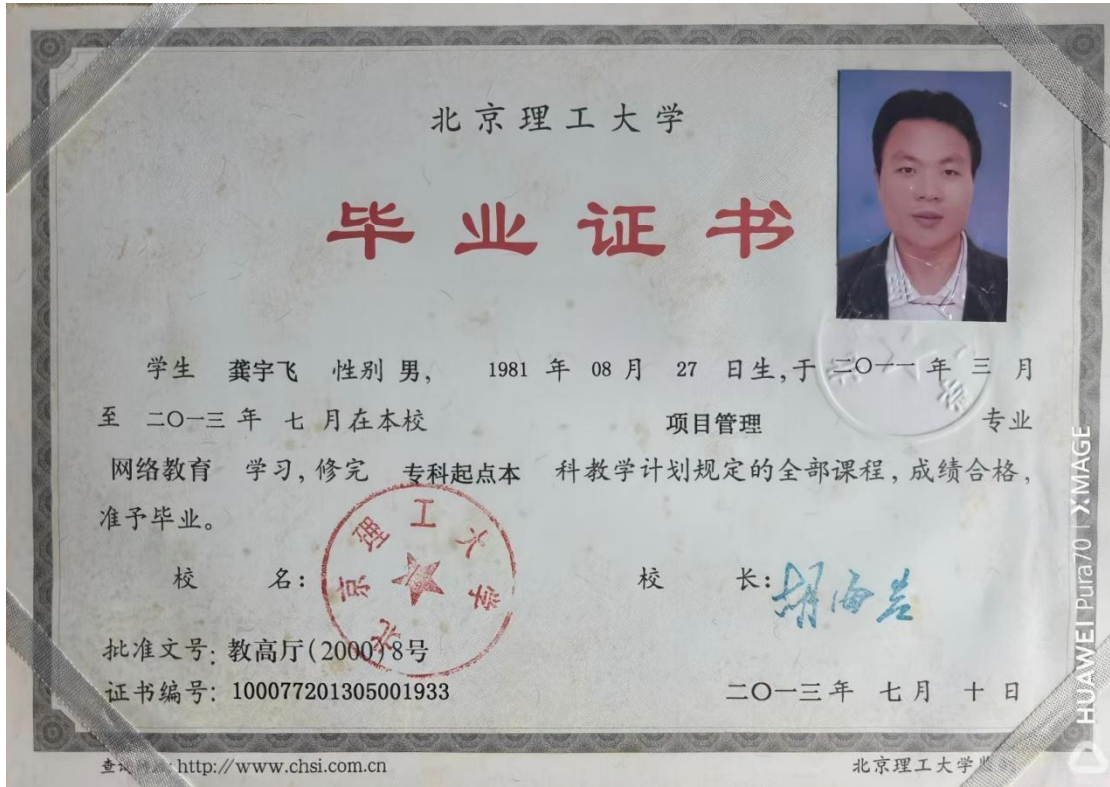 北京理工大学
毕业证书
学生 龚宇飞 性别 男, 1981 年 08 月 27 日生,于 二〇一一 年 三 月
至 二〇一三 年 七 月在本校 项目管理 专业
网络教育 学习,修完 专科起点本 科教学计划规定的全部课程,成绩合格,
准予毕业。
校 名: 校 长: 胡海岩
北京理工大学
批准文号: 教高厅(2000)8号
证书编号: 100077201305001933 二〇一三年 七月 十 日
http://www.chsi.com.cn 北京理工大学
HUAWEI Pura70 | XMAGE